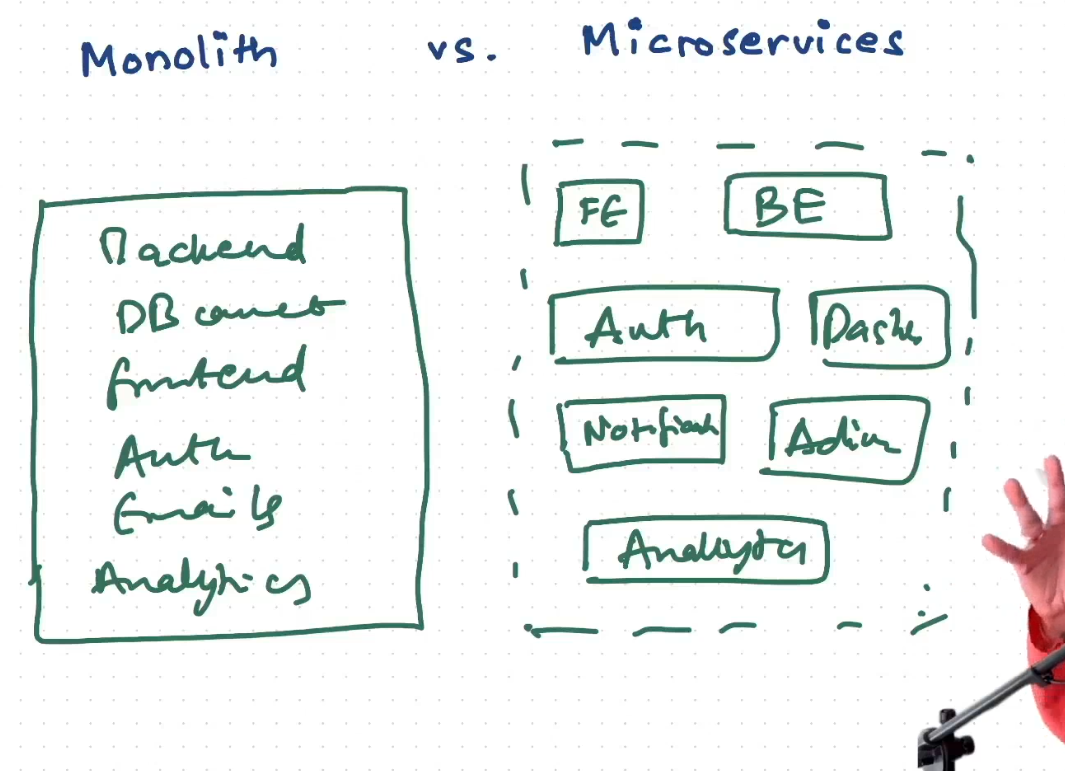 Monolith vs. Microservices
Backend
DB connect
frontend
Auth
Emails
Analytics
FE BE
Auth
Notificat
Analytics